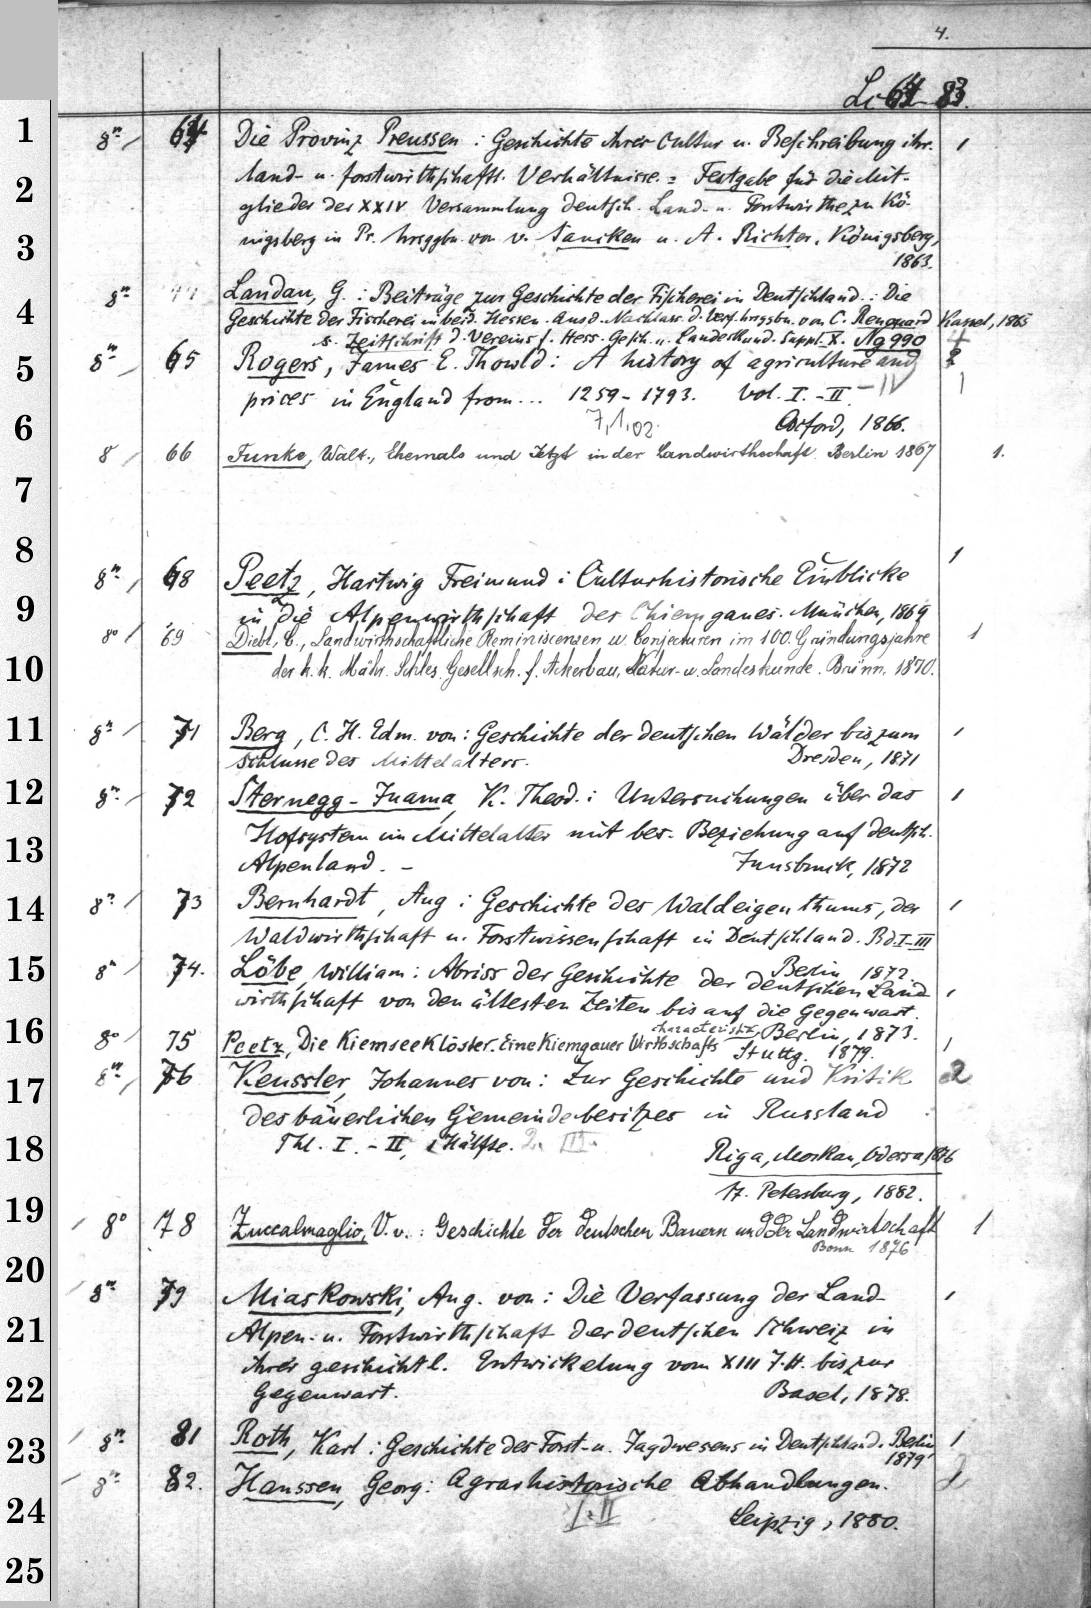 4.
1
8° / 64 Die Provinz Preussen : Geschichte ihrer Cultur u. Beschreibung ihr. 1
land- u. forstwirthschaftl. Verhältnisse. = Festgabe für die Mit-
2
glieder der XXIV Versammlung deutsch. Land- u. Forstwirthe zu Kö-
3
nigsberg in Pr. hrsggbn. von v. Saucken u. A. Richter. Königsberg,
1863.
8° Landau, G. : Beiträge zur Geschichte der Fischerei in Deutschland. : Die
4
Geschichte der Fischerei in beid. Hessen. Aus d. Nachlass. d. Verf. hrsgbn. von C. Renouard Kassel, 1865
s. Zeitschrift d. Vereins f. Hess. Gesch. u. Landeskund. Suppl. X. Ag 990
5
8° / 65 Rogers, James E. Thorold : A history of agriculture and
prices in England from... 1259-1793. Vol. I. - II - IV 1
6
7,1,02. Oxford, 1866.
8 / 66 Funke, Walt., Ehemals und Jetzt in der Landwirthschaft. Berlin 1867 1.
7
8
8° / 68 Peetz, Hartwig Freimund : Culturhistorische Einblicke 1
9
in die Alpenwirthschaft des Chiemgaues. München, 1869
8° / 69 Diebl, C., Landwirthschaftliche Reminiscenzen u. Conjecturen im 100. Gründungsjahre 1
10
der k. k. Mähr. Schles. Gesellsch. f. Ackerbau, Natur- u. Landeskunde. Brünn. 1870.
11
8° / 71 Berg, C. H. Edm. von : Geschichte der deutschen Wälder bis zum 1
Schlusse des Mittelalters. Dresden, 1871
12
8° / 72 Sternegg-Inama, K. Theod. : Untersuchungen über das 1
13
Hofsystem im Mittelalter mit bes. Beziehung auf deutsch.
Alpenland. - Innsbruck, 1872
14
8° / 73 Bernhardt, Aug : Geschichte des Waldeigenthums, der 1
Waldwirthschaft u. Forstwissenschaft in Deutschland. Bd. I-III
Berlin, 1872.
15
8° / 74. Löbe, William : Abriss der Geschichte der deutschen Land 1
wirthschaft von den ältesten Zeiten bis auf die Gegenwart.
Berlin, 1873.
16
8° / 75 Peetz, Die Kiemseeklöster. Eine Kiemgauer Wirthschafts characteristik, Stuttg. 1879. 1
17
8° / 76 Keussler, Johannes von : Zur Geschichte und Kritik 2
des bäuerlichen Gemeindebesitzes in Russland
18
Thl. I. - II, 1 Hälfte. 2. III.
Riga, Moskau, Odessa 1876
St. Petersburg, 1882.
19
/ 8° 78 Zuccalmaglio, V. v. : Geschichte der deutschen Bauern und der Landwirtschaft 1
Bonn 1876
20
/ 8° / 79 Miaskowski, Aug. von : Die Verfassung der Land- 1
21
Alpen- u. Forstwirthschaft der deutschen Schweiz in
ihrer geschichtl. Entwickelung vom XIII J.H. bis zur
22
Gegenwart. Basel, 1878.
23
/ 8° 81 Roth, Karl : Geschichte des Forst- u. Jagdwesens in Deutschland. Berlin 1
1879
/ 8° 82. Hanssen, Georg : Agrarhistorische Abhandlungen.
24
I. II Leipzig, 1880.
25